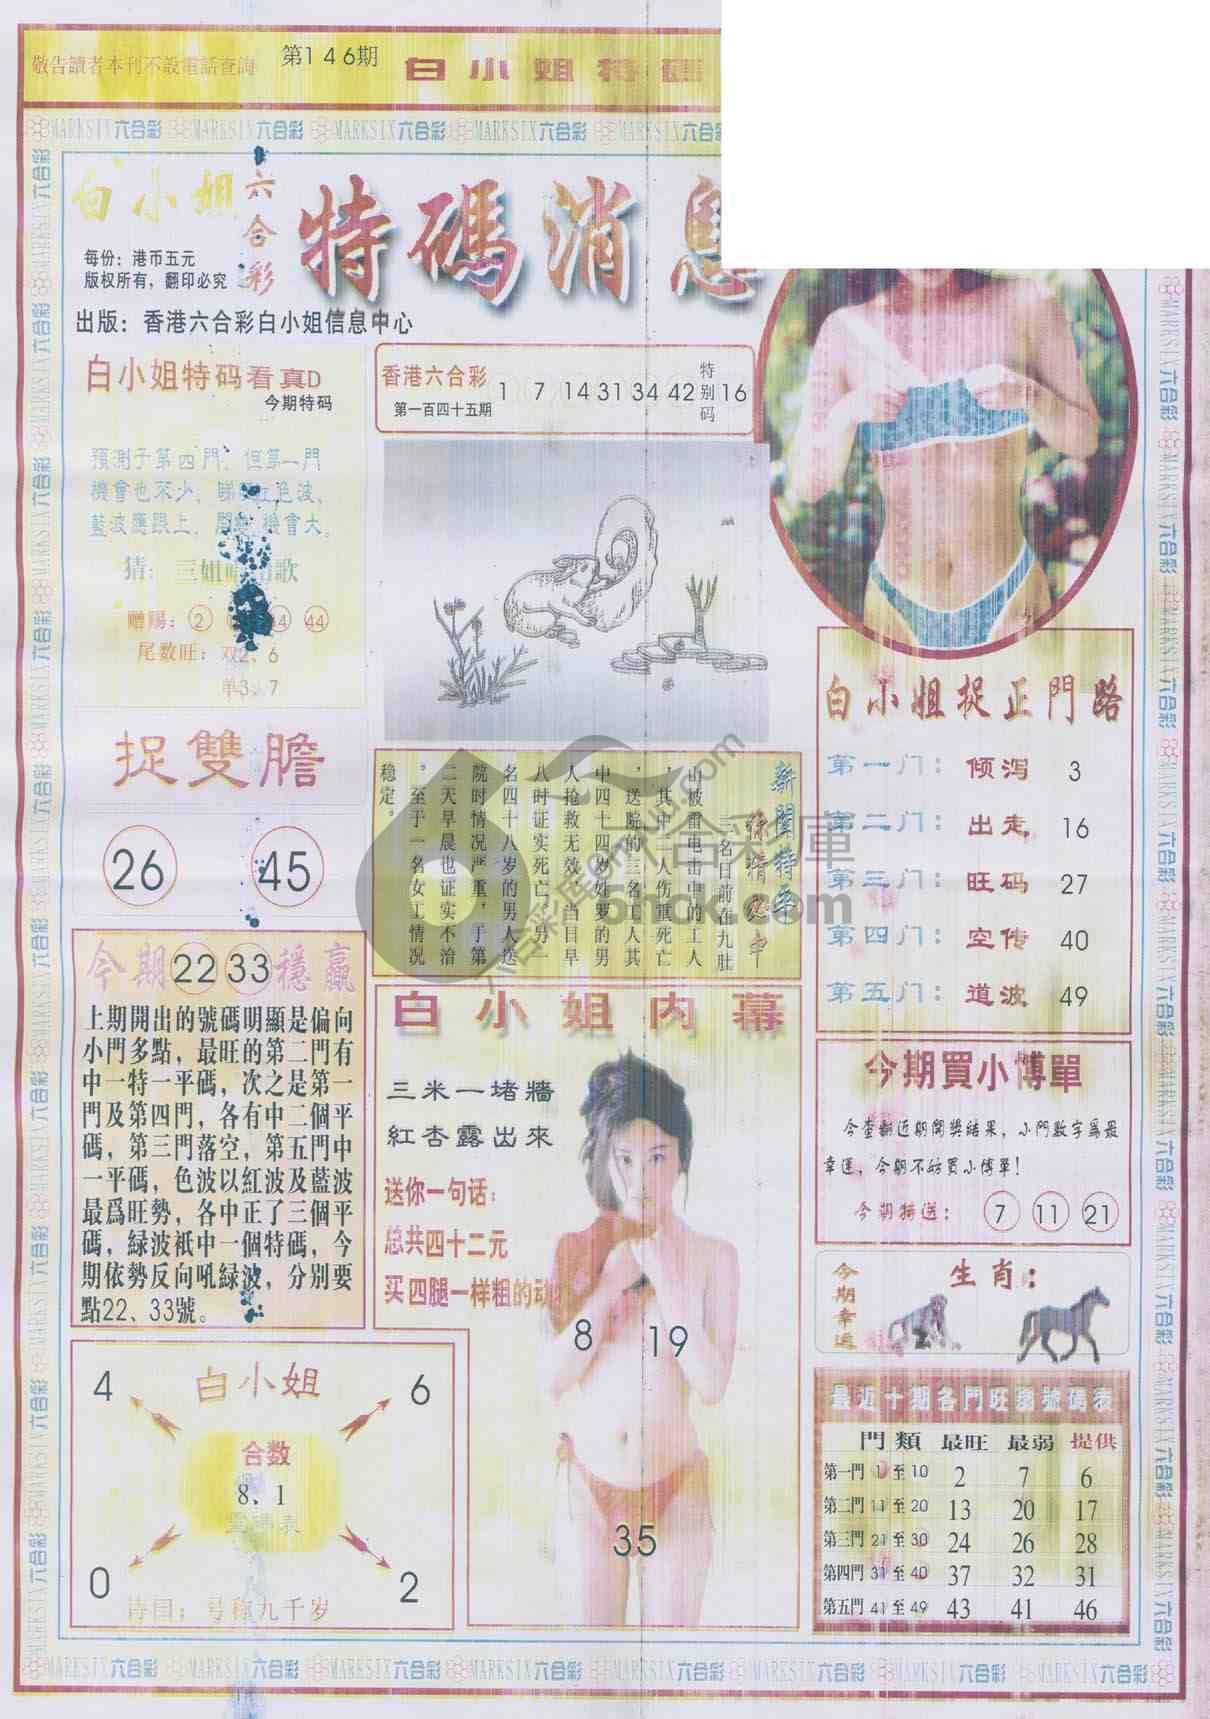 敬告讀者本刊不設電話查詢
第146期
白小姐特碼
MARKSIX六合彩 MARKSIX六合彩 MARKSIX六合彩 MARKSIX六合彩
白小姐
六合彩
特碼消息
每份：港币五元
版权所有，翻印必究
出版：香港六合彩白小姐信息中心
白小姐特码看真D
今期特码
預測子第四門，但第一門
機會也不少，睇
色波，
藍波應跟上，
機會大。
猜：三姐
歌
贈賜：2
44
尾数旺：双2、6
单3、7
香港六合彩
第一百四十五期
1 7 14 31 34 42
特别码
16
捉雙膽
26 45
今期22 33穩贏
上期開出的號碼明顯是偏向
小門多點，最旺的第二門有
中一特一平碼，次之是第一
門及第四門，各有中二個平
碼，第三門落空，第五門中
一平碼，色波以紅波及藍波
最爲旺勢，各中正了三個平
碼，緑波祇中一個特碼，今
期依勢反向吼緑波，分别要
點22、33號。
新聞特
三名日前在九肚
山被雷电击中的工人
，其中二人伤重死亡
，送院的三名工人其
中四十四岁姓罗的男
人抢救无效，当日早
八时证实死亡，另一
名四十八岁的男人送
院时情况严重，于第
二天早晨也证实不治
。至于一名女工情况
稳定。
白小姐内幕
三米一堵牆
紅杏露出來
送你一句话：
总共四十二元
买四腿一样粗的动物
8 19
35
白小姐捉正門路
第一门：倾泻 3
第二门：出走 16
第三门：旺码 27
第四门：空传 40
第五门：道波 49
今期買小博單
今查新近期開獎結果，小門數字爲最
幸運，今期不妨買小博單！
今期特送：7 11 21
今期幸运
生肖：
白小姐
4 6
合数
8、1
0 2
诗曰：号称九千岁
最近十期各門旺弱號碼表
門類 最旺 最弱 提供
第一門 1至10 2 7 6
第二門 11至20 13 20 17
第三門 21至30 24 26 28
第四門 31至40 37 32 31
第五門 41至49 43 41 46
MARKSIX六合彩 MARKSIX六合彩 MARKSIX六合彩 MARKSIX六合彩 MARKSIX六合彩 MARKSIX六合彩 MARKSIX六合彩 MARKSIX六合彩
六合彩庫